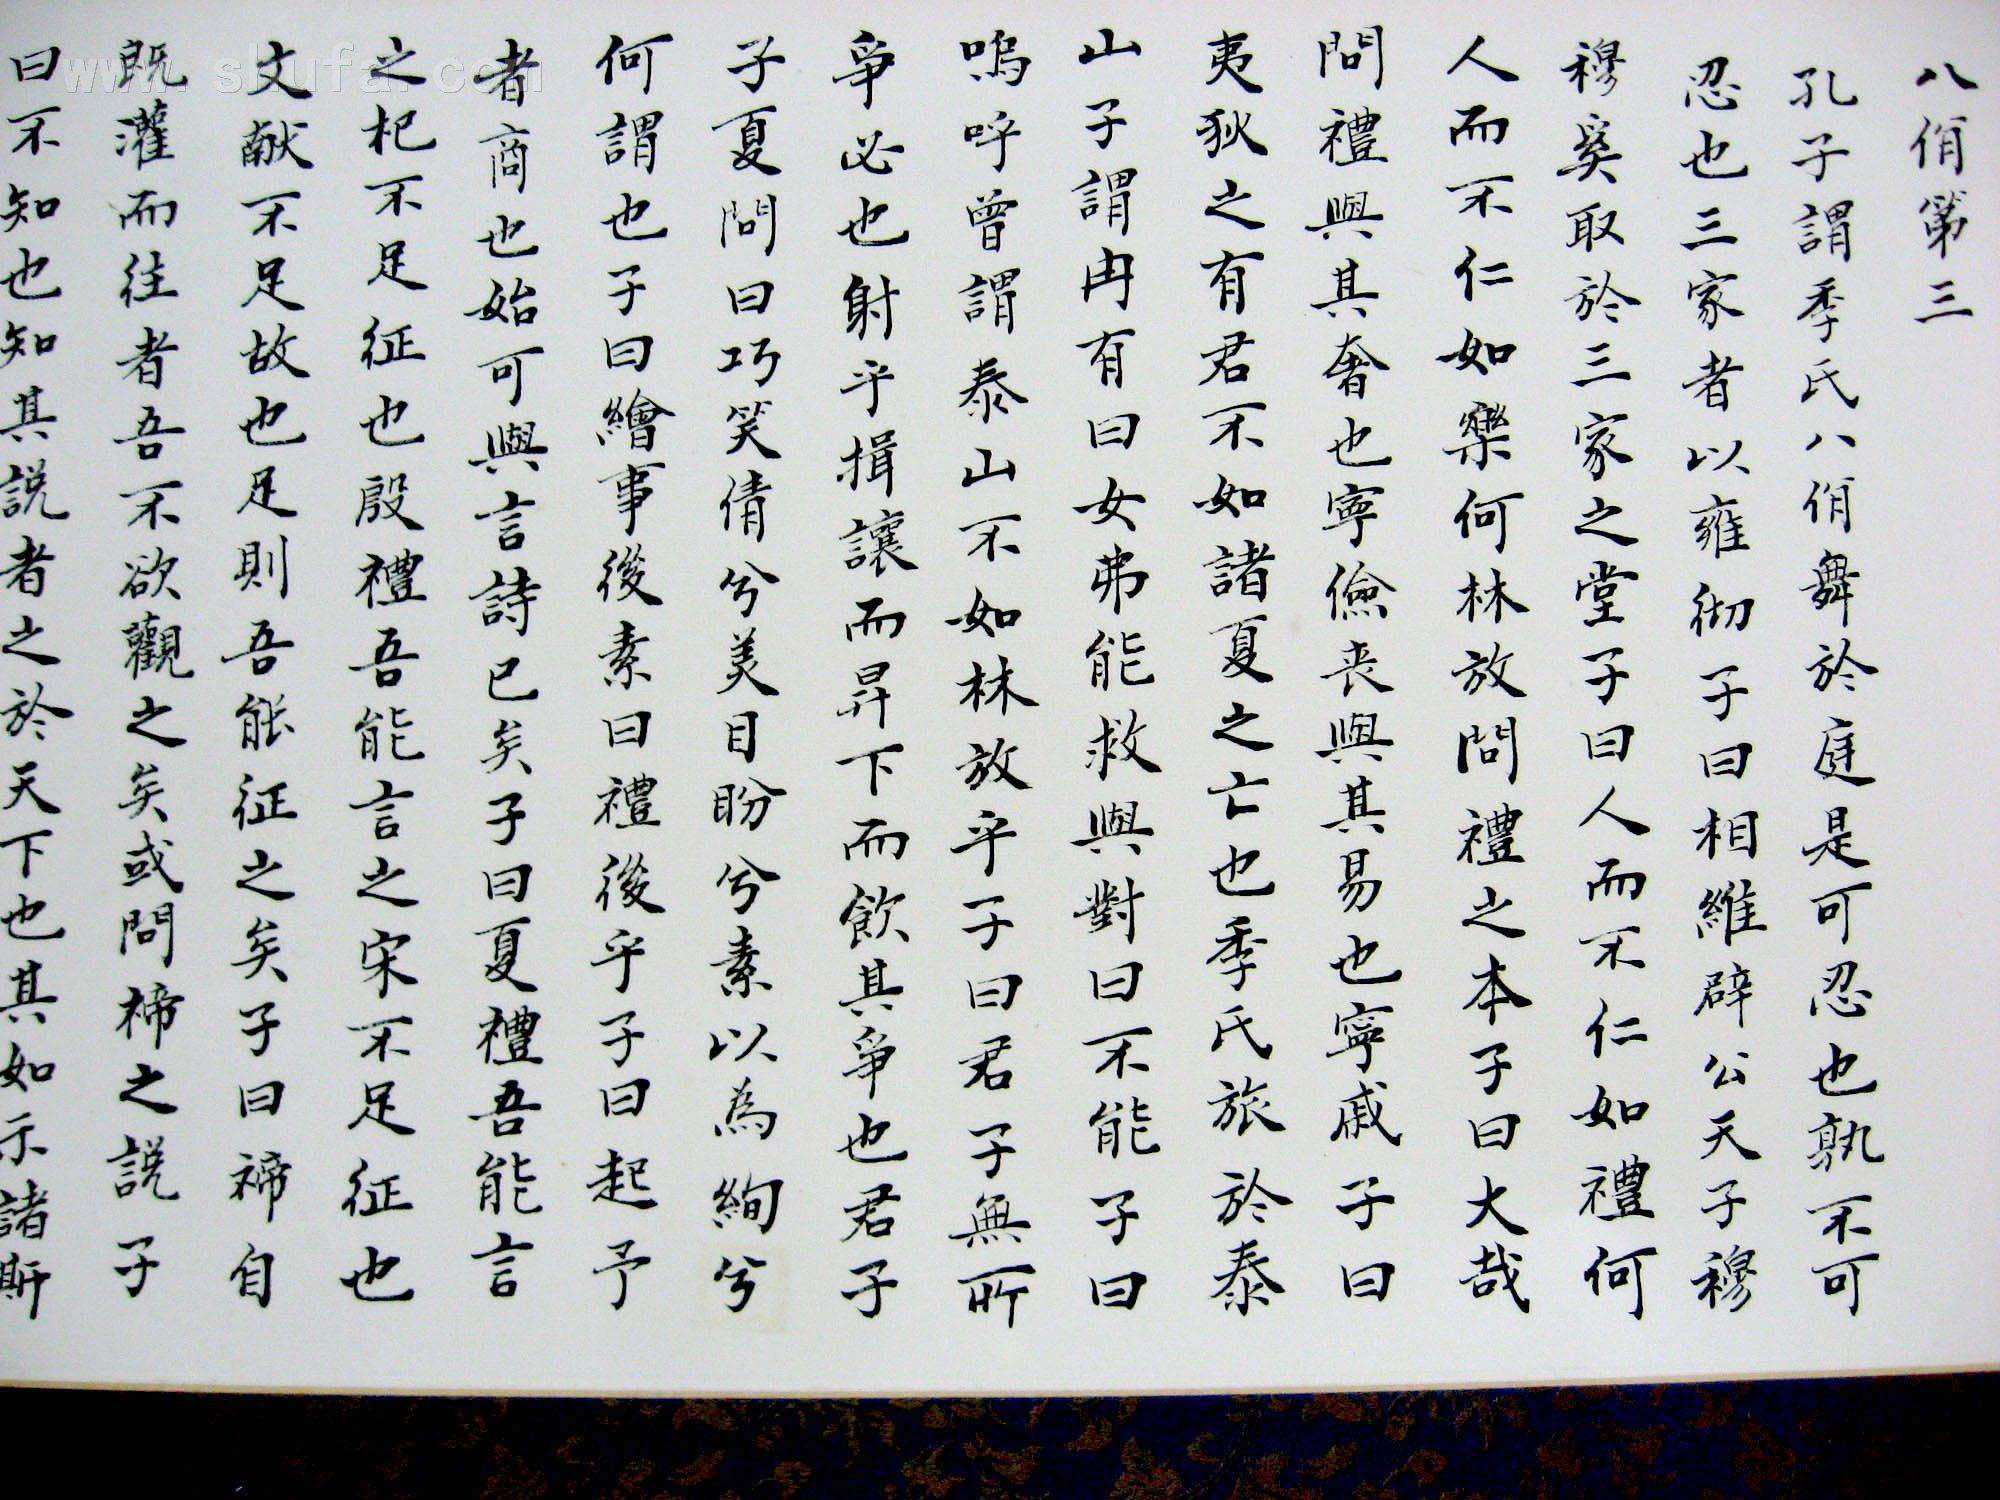 八佾第三
孔子謂季氏八佾舞於庭是可忍也孰不可
忍也三家者以雍彻子曰相維辟公天子穆
穆奚取於三家之堂子曰人而不仁如禮何
人而不仁如樂何林放問禮之本子曰大哉
問禮與其奢也寧儉丧與其易也寧戚子曰
夷狄之有君不如諸夏之亡也季氏旅於泰
山子謂冉有曰女弗能救與對曰不能子曰
嗚呼曾謂泰山不如林放乎子曰君子無所
爭必也射乎揖讓而昇下而飲其爭也君子
子夏問曰巧笑倩兮美目盼兮素以為絢兮
何謂也子曰繪事後素曰禮後乎子曰起予
者商也始可與言詩已矣子曰夏禮吾能言
之杞不足征也殷禮吾能言之宋不足征也
文献不足故也足則吾能征之矣子曰褅自
既灌而往者吾不欲觀之矣或問褅之説子
曰不知也知其説者之於天下也其如示諸斯
www.shufa.com